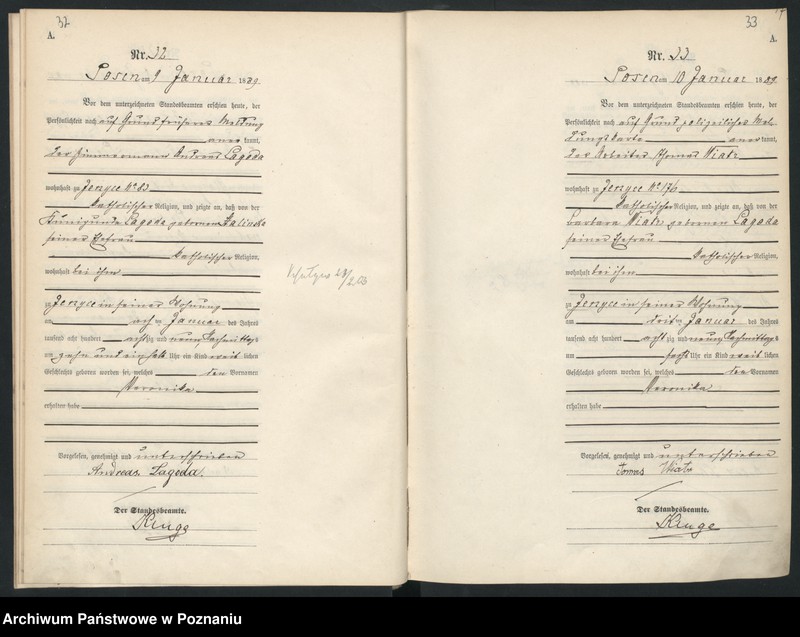 32
A.
Nr. 32
Posen am 9 Januar 1889
Vor dem unterzeichneten Standesbeamten erschien heute, der
Persönlichkeit nach auf Grund früherer Meldung
anerkannt,
der Zimmermann Andreas Lagoda
wohnhaft zu Jerzyce No 83
katholischer Religion, und zeigte an, daß von der
Kunigunde Lagoda geborenen
seiner Ehefrau
katholischer Religion,
wohnhaft bei ihm
zu Jerzyce in seiner Wohnung
am acht ten Januar des Jahres
tausend acht hundert achtzig und neun, Nachmittags
um zehn und ein halb Uhr ein Kind weiblichen
Geschlechts geboren worden sei, welches den Vornamen
Veronika
erhalten habe
Vorgelesen, genehmigt und unterschrieben
Andreas Lagoda.
Der Standesbeamte.
Kruge
33
A.
Nr. 33
Posen am 10 Januar 1889
Vor dem unterzeichneten Standesbeamten erschien heute, der
Persönlichkeit nach auf Grund polizeilicher Mel-
dungskarte anerkannt,
der Arbeiter Thomas Wiatr
wohnhaft zu Jerzyce No 176
katholischer Religion, und zeigte an, daß von der
Barbara Wiatr geborenen Lagoda
seiner Ehefrau
katholischer Religion,
wohnhaft bei ihm
zu Jerzyce in seiner Wohnung
am dritten Januar des Jahres
tausend acht hundert achtzig und neun, Nachmittags
um sechs Uhr ein Kind weiblichen
Geschlechts geboren worden sei, welches den Vornamen
Veronika
erhalten habe
Vorgelesen, genehmigt und unterschrieben
Tomas Wiatr
Der Standesbeamte.
Kruge
Archiwum Państwowe w Poznaniu